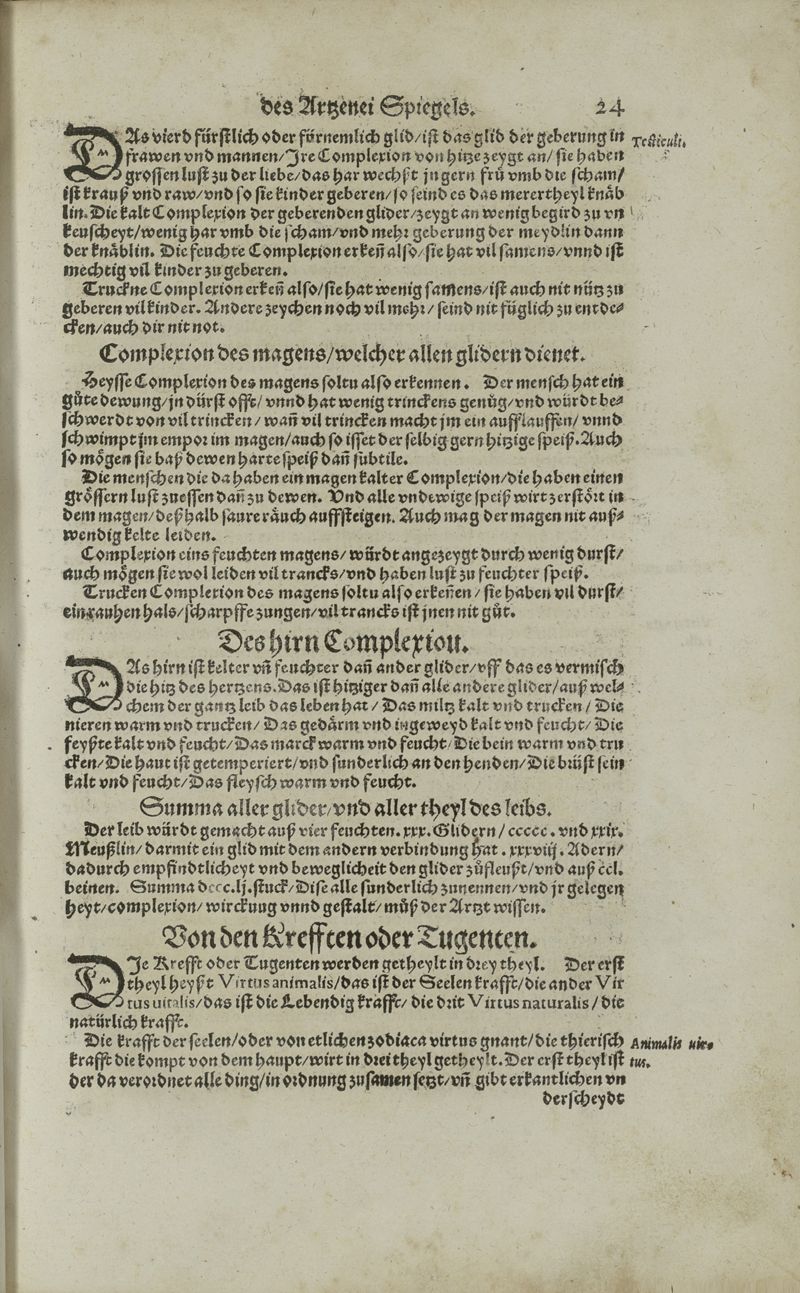 des Artzenei Spiegels. 24
DAs vierd fürstlich oder fürnemlich glid/ist das glid der geberung in
frawen vnd mannen/Jre Complexion von hitze zeygt an/sie haben
grossen lust zu der liebe/das har wechßt jn gern frü vmb die scham/
ist krauß vnd raw/vnd so sie kinder geberen/so seind es das merertheyl knäb
lin. Die kalt Complexion der geberenden glider/zeygt an wenig begird zu vn
keuscheyt/wenig har vmb die scham/vnd mehr geberung der meydlin dann
der knäblin. Die feuchte Complexion erkeñ also/sie hat vil samens/vnnd ist
mechtig vil kinder zu geberen.
Truckne Complexion erkeñ also/sie hat wenig samens/ist auch nit nütz zu
geberen vil kinder. Andere zeychen noch vil mehr/seind nit füglich zu entde-
cken/auch dir nit not.
Testiculi.
Complexion des magens/welcher allen glidern dienet.
Heysse Complexion des magens soltu also erkennen. Der mensch hat ein
gůte dewung/jn dürst offt/vnnd hat wenig trinckens genůg/vnd würdt be-
schwerdt von vil trincken/wañ vil trincken macht jm ein aufflauffen/vnnd
schwimpt jm empor im magen/auch so isset der selbig gern hitzige speiß. Auch
so mögen sie baß dewen harte speiß dañ subtile.
Die menschen die da haben ein magen kalter Complexion/die haben einen
grössern lust zuessen dañ zu dewen. Vnd alle vndewige speiß wirt zerstört in
dem magen/deßhalb saure räuch auffsteigen. Auch mag der magen nit auß-
wendig kelte leiden.
Complexion eins feuchten magens/würdt angezeygt durch wenig durst/
auch mögen sie wol leiden vil trancks/vnd haben lust zu feuchter speiß.
Trucken Complexion des magens soltu also erkeñen/sie haben vil durst/
ein rauhen hals/scharpffe zungen/vil trancks ist jnen nit gůt.
Des hirn Complexion.
DAs hirn ist kelter vñ feuchter dañ ander glider/vff das es vermisch
die hitz des hertzens. Das ist hitziger dañ alle andere glider/auß wel-
chem der gantz leib das leben hat/Das miltz kalt vnd trucken/Die
nieren warm vnd trucken/Das gedärm vnd ingeweyd kalt vnd feucht/Die
feyßte kalt vnd feucht/Das marck warm vnd feucht/Die bein warm vnd tru
cken/Die haut ist getemperiert/vnd sunderlich an den henden/Die brüst sein
kalt vnd feucht/Das fleysch warm vnd feucht.
Summa aller glider/vnd aller theyl des leibs.
Der leib würdt gemacht auß vier feuchten. xxx. Glidern/ccccc. vnd xxix.
Meußlin/darmit ein glid mit dem andern verbindung hat. xxxviij. Adern/
dadurch empfindtlicheyt vnd beweglicheit den glider zůfleußt/vnd auß ccl.
beinen. Summa dccc.lj. stuck/Dise alle sunderlich zunennen/vnd jr gelegen
heyt/complexion/wirckung vnnd gestalt/můß der Artzt wissen.
Von den Krefften oder Tugenten.
DJe Krefft oder Tugenten werden getheylt in drey theyl. Der erst
theyl heyßt Virtus animalis/das ist der Seelen krafft/die ander Vir
tus uitalis/das ist die Lebendig krafft/die drit Virtus naturalis/die
natürlich krafft.
Die krafft der seelen/oder von etlichen zodiaca virtus gnant/die thierisch
krafft die kompt von dem haupt/wirt in drei theyl getheylt. Der erst theyl ist
der da verordnet alle ding/in ordnung zusamen setzt/vñ gibt erkantlichen vn
Animalis uir-
tus.
derscheydt